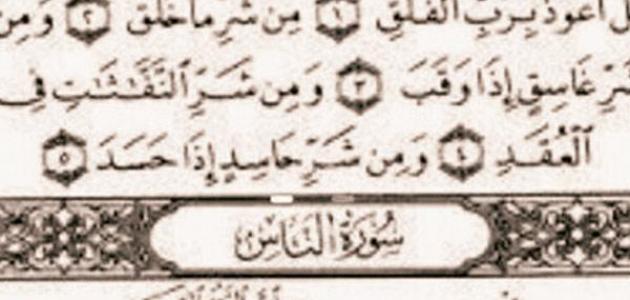 أعوذ برب الفلق ١ من شر ما خلق ٢ ومن
شَرِّ غَاسِقٍ إِذَا وَقَبَ ٣ وَمِن شَرِّ ٱلنَّفَّٰثَٰتِ فِى
ٱلْعُقَدِ ٤ وَمِن شَرِّ حَاسِدٍ إِذَا حَسَدَ ٥
سُورَةُ النَّاسِ